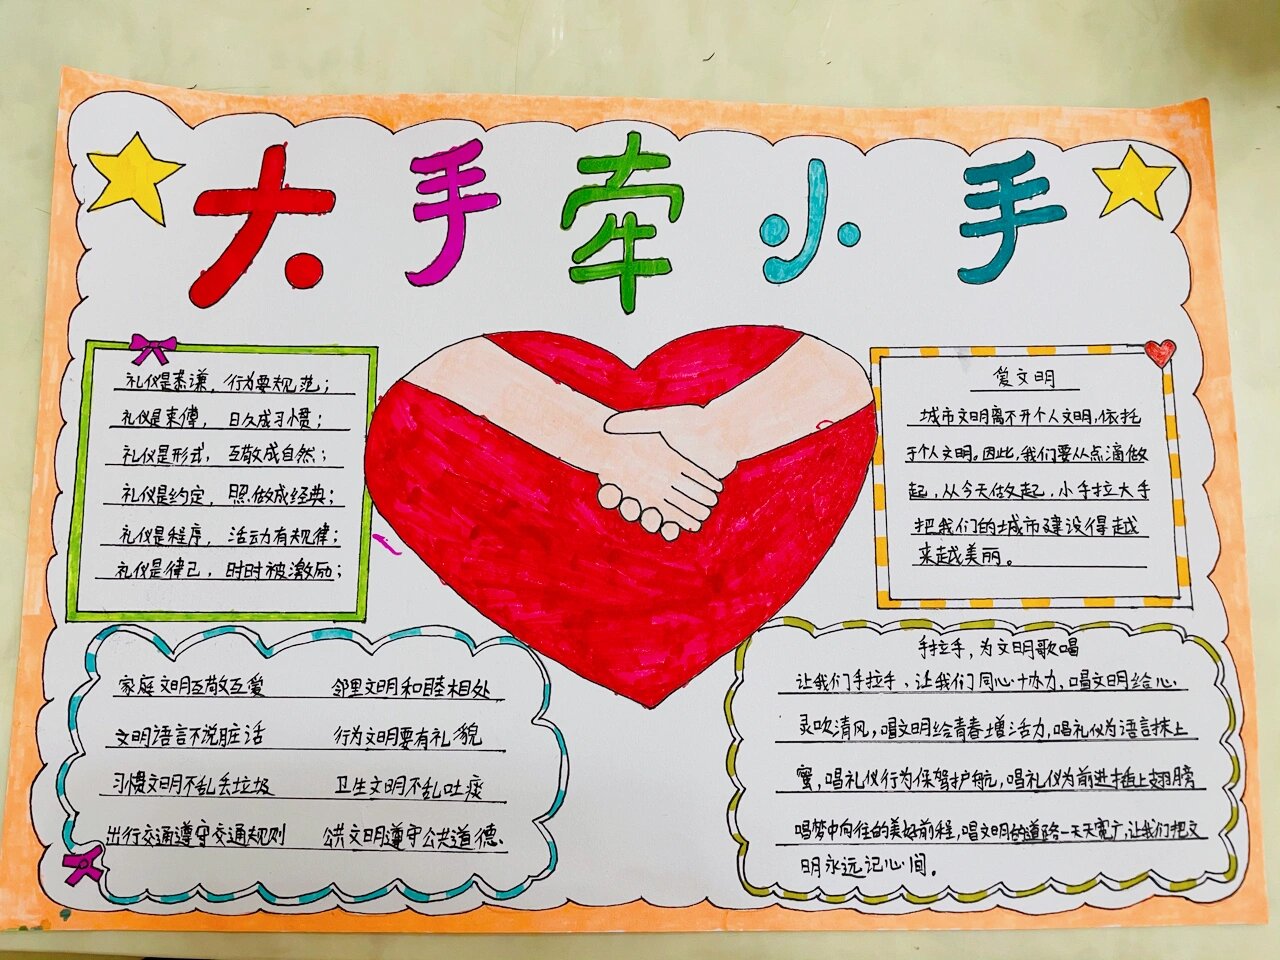 大手牵小手
礼仪是素谦，行为要规范；
礼仪是束缚，日久成习惯；
礼仪是形式，互敬成自然；
礼仪是约定，照做成经典；
礼仪是程序，活动有规律；
礼仪是律己，时时被激励；
爱文明
城市文明离不开个人文明，依托
于个人文明。因此，我们要从点滴做
起，从今天做起，小手拉大手
把我们的城市建设得越
来越美丽。
家庭文明互敬互爱 邻里文明和睦相处
文明语言不说脏话 行为文明要有礼貌
习惯文明不乱丢垃圾 卫生文明不乱吐痰
出行交通遵守交通规则 公共文明遵守公共道德.
手拉手，为文明歌唱
让我们手拉手，让我们同心协力，唱文明给心
灵吹清风，唱文明给青春增活力，唱礼仪为语言抹上
蜜，唱礼仪行为保驾护航，唱礼仪为前进插上翅膀
唱梦中向往的美好前程，唱文明的道路一天天宽广，让我们把文
明永远记心间。